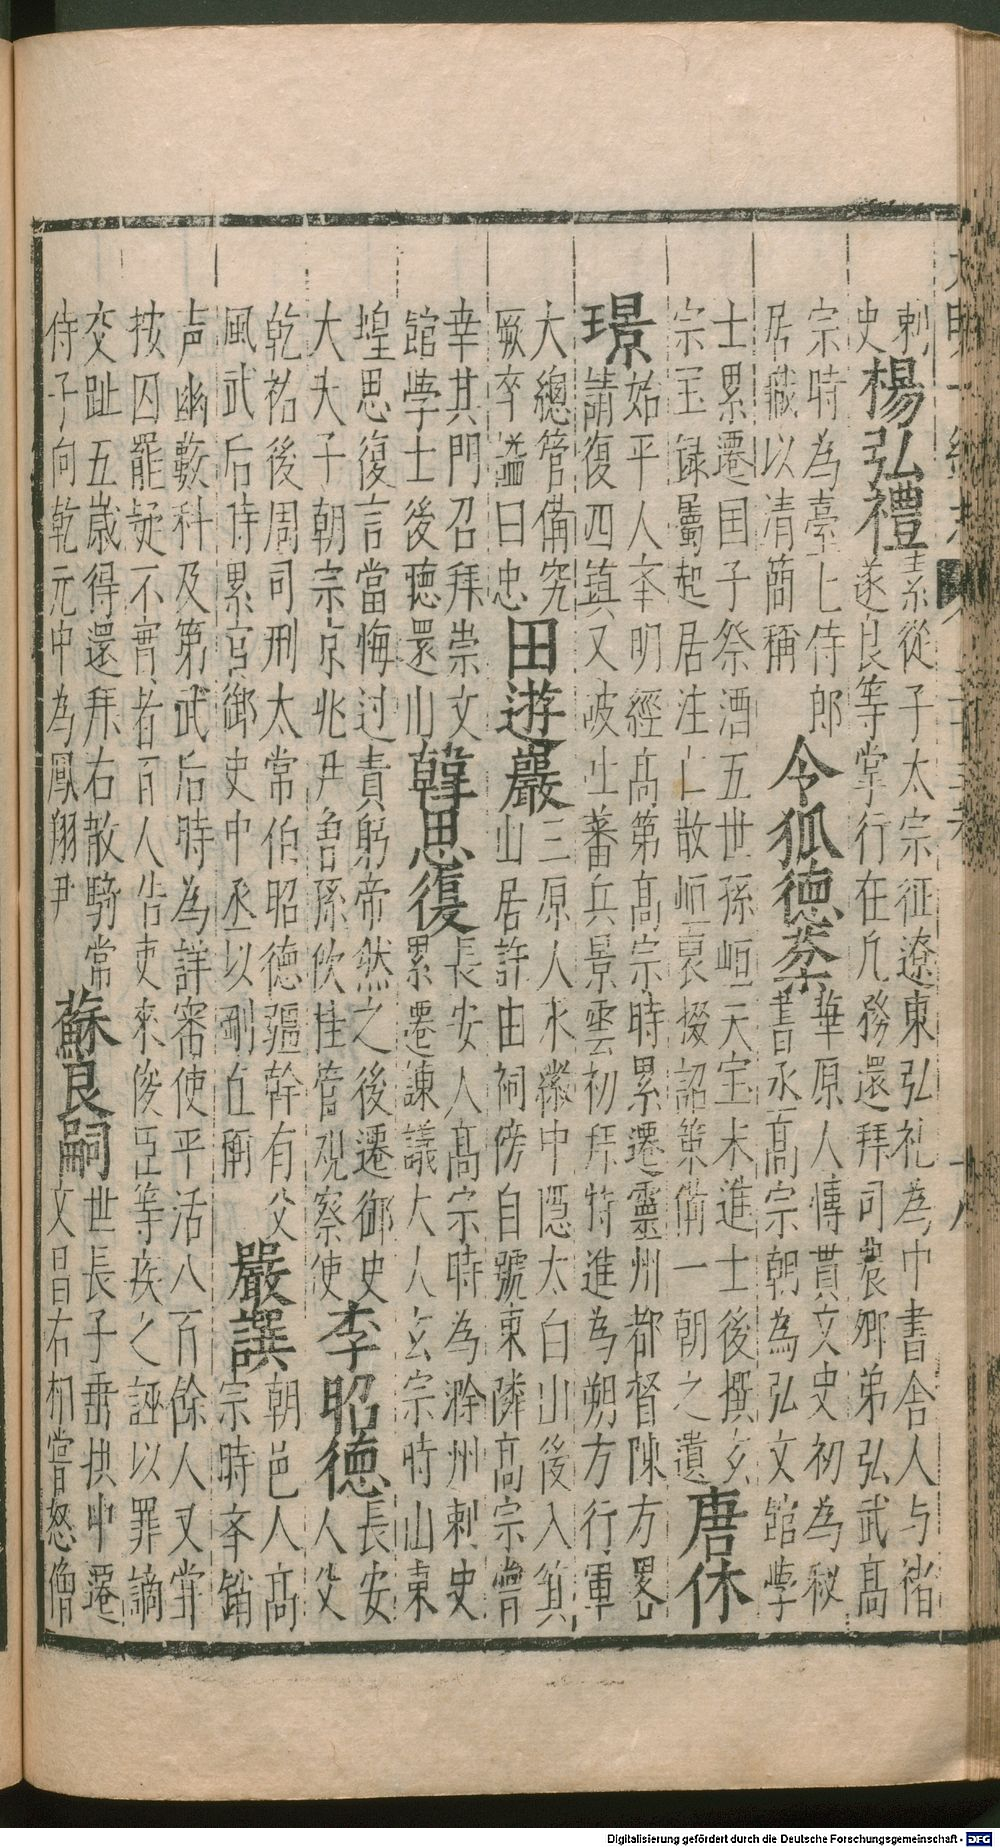 大明一統志
十八
刺
史
楊弘禮
素從子太宗征遼東弘礼為中書舍人与褚
遂良等掌行在凢務還拜司農卿弟弘武高
宗時為臺上侍郎
居職以清簡稱
令狐德棻
華原人慱貫文史初為秘
書丞高宗朝為弘文館學
士累遷囯子祭酒五世孫峘天宝末進士後撰玄
宗宝録屬起居注亡散峘裒掇詔策備一朝之遺
唐休
璟
始平人夆明經高第高宗時累遷靈州都督陳方畧
請復四鎮又破吐蕃兵景雲初拜特進為朔方行軍
大總管備突
厥卒謚曰忠
田遊巖
三原人永徽中隱太白山後入箕
山居許由祠傍自號東隣高宗嘗
幸其門召拜崇文
館學士後聴還山
韓思復
長安人高宗時為滁州刺史
累遷諫議大人玄宗時山東
蝗思復言當悔过責躬帝然之後遷御史
大夫子朝宗京兆尹曾孫佽桂管观察使
李昭德
長安
人父
乾祐後周司刑太常伯昭德彊幹有父
風武后時累官御史中丞以剛在
嚴譔
朝邑人高
宗時夆銷
声幽藪科及第武后時為詳審使平活八百餘人又甞
按囚罷疑不實者百人告吏來俊臣等疾之誣以罪謫
交趾五歲得還拜右散騎常
侍子向乾元中為鳳翔尹
蘇良嗣
世長子垂拱中遷
文昌右相嘗怒僧
Digitalisierung gefördert durch die Deutsche Forschungsgemeinschaft - DFG